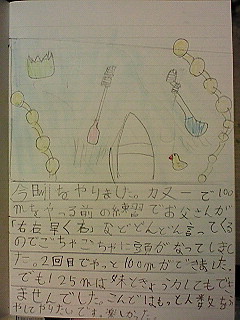 今日もやりました。カヌーで100
mをやる前の練習でお父さんが
「右右早く右」などどんどん言ってくる
のでごちゃごちゃに頭がなってしまし
た。2回目でやっと100mができました。
でも125mは どりょうしてもでき
ませんでした。こんではもっと人数を
やしてやりたいです。楽しかった。